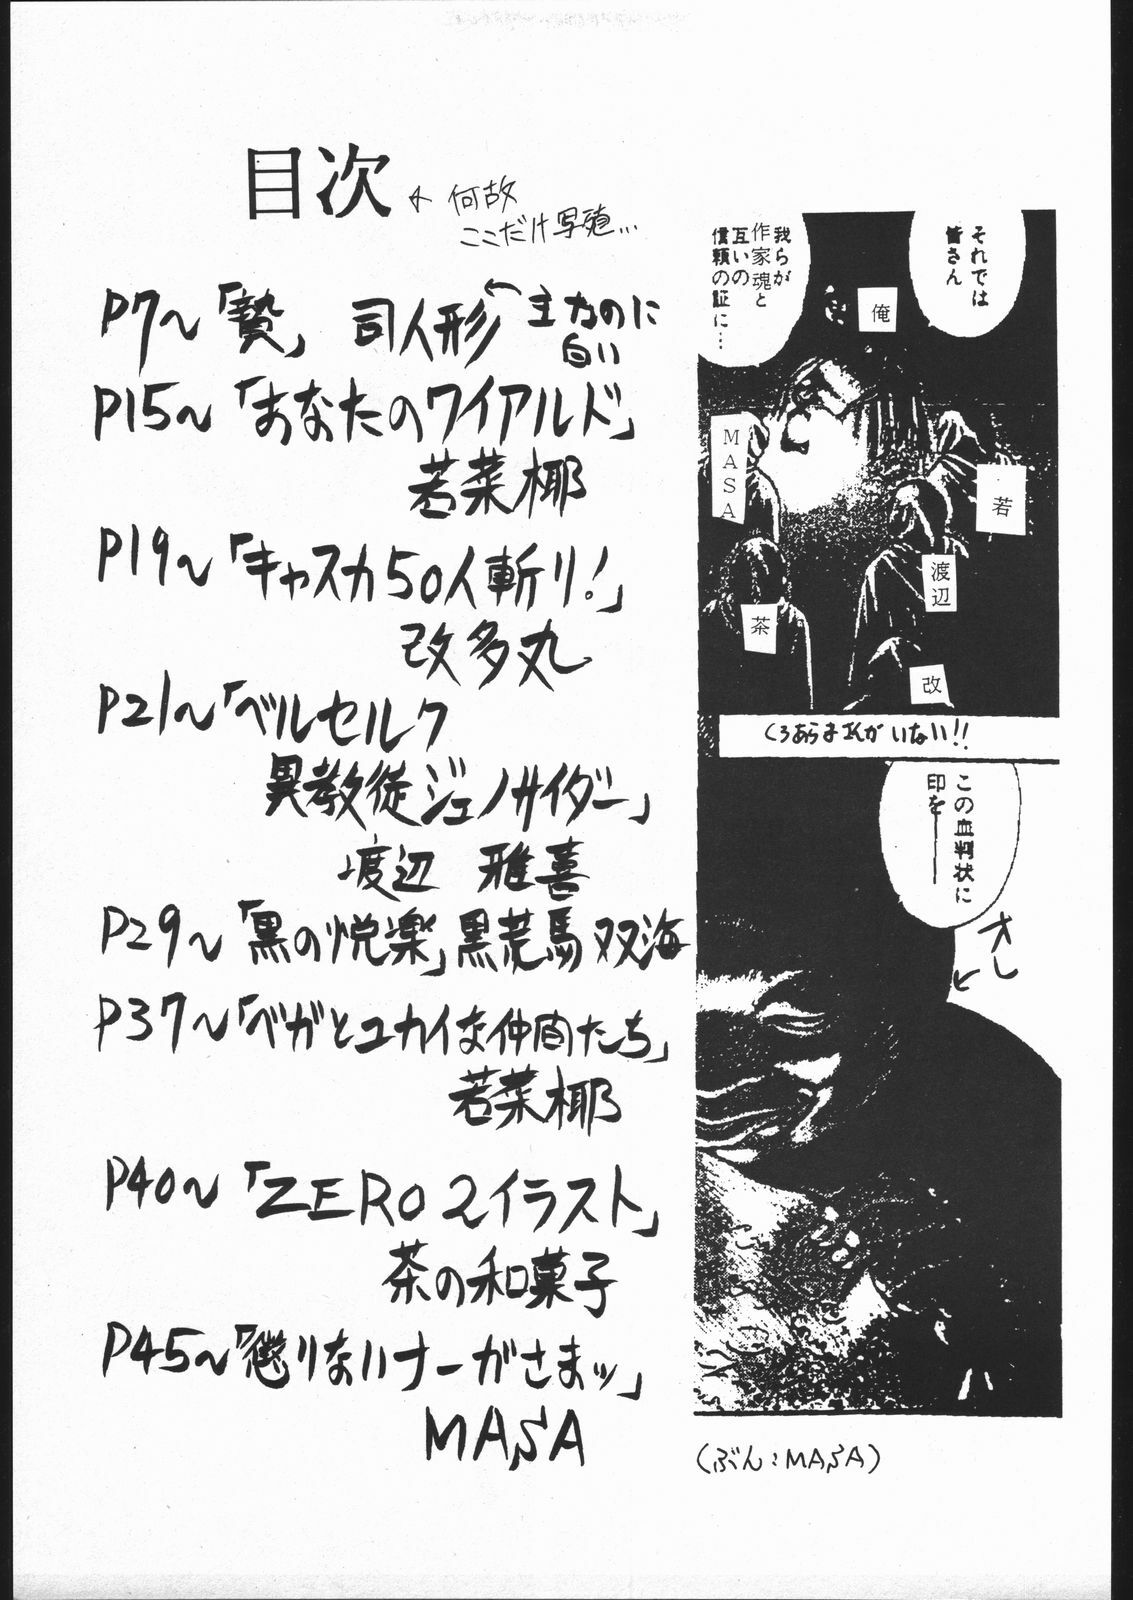 目次
← 何故
ここだけ写植…
P7～「贄」 司人形 ← 主なのに
白い
P15～「あなたのワイアルド」
若菜椰
P19～「キャスカ50人斬り!」
改多丸
P21～「ベルセルク
異教徒ジェノサイダー」
渡辺 雅喜
P29～「黒の悦楽」黒荒馬双海
P37～「ベガとユカイな仲間たち」
若菜椰
P40～「ZERO2イラスト」
茶の和菓子
P45～「懲りないナーがさまッ」
MASA
それでは
皆さん
我らが
作家魂と
互いの
信頼の証に…
俺
MASA
若
渡辺
茶
改
くろあらまさんがいない!!
この血判状に
印を――
オレ
(ぶん:MASA)